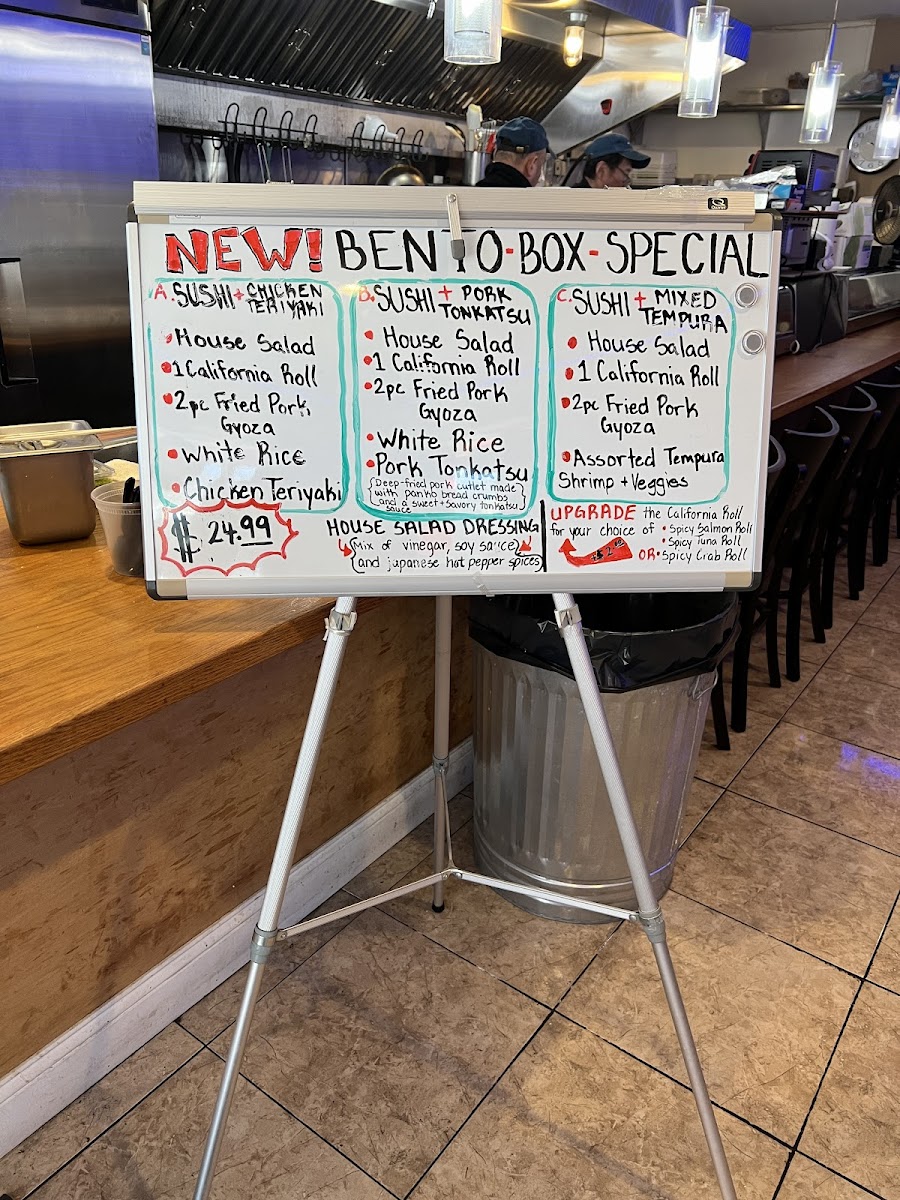 NEW! BENTO-BOX-SPECIAL
A. SUSHI + CHICKEN TERIYAKI
• House Salad
• 1 California Roll
• 2pc Fried Pork
Gyoza
• White Rice
• Chicken Teriyaki
B. SUSHI + PORK TONKATSU
• House Salad
• 1 California Roll
• 2pc Fried Pork
Gyoza
• White Rice
• Pork Tonkatsu
(Deep-fried pork cutlet made
with panko bread crumbs
and a sweet + savory tonkatsu
sauce)
C. SUSHI + MIXED TEMPURA
• House Salad
• 1 California Roll
• 2pc Fried Pork
Gyoza
• Assorted Tempura
Shrimp + Veggies
$ 24.99
HOUSE SALAD DRESSING
(Mix of vinegar, soy sauce,
and japanese hot pepper spices)
UPGRADE the California Roll
for your choice of • Spicy Salmon Roll
• Spicy Tuna Roll
OR • Spicy Crab Roll